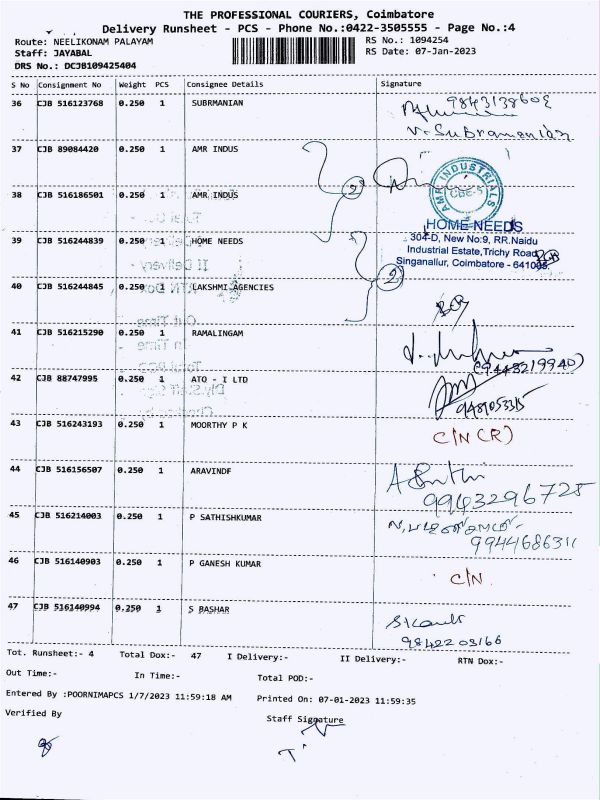 THE PROFESSIONAL COURIERS, Coimbatore
Delivery Runsheet - PCS - Phone No.:0422-3505555 - Page No.:4
Route: NEELIKONAM PALAYAM
RS No.: 1094254
Staff: JAYABAL
RS Date: 07-Jan-2023
DRS No.: DCJB109425404
S No Consignment No Weight PCS Consignee Details Signature
36 CJB 516123768 0.250 1 SUBRMANIAN
9843138602
V. Subramanian
37 CJB 89084420 0.250 1 AMR INDUS
AMR INDUSTRIALS
CBE-5
38 CJB 516186501 0.250 1 AMR INDUS
2
HOME NEEDS
39 CJB 516244839 0.250 1 HOME NEEDS
304-D, New No:9, RR.Naidu
Industrial Estate,Trichy Road
Singanallur, Coimbatore - 641005.
40 CJB 516244845 0.250 1 LAKSHMI AGENCIES
2
41 CJB 516215290 0.250 1 RAMALINGAM
(9443219940)
42 CJB 88747995 0.250 1 ATO - I LTD
9489053315
43 CJB 516243193 0.250 1 MOORTHY P K
C/N (R)
44 CJB 516156507 0.250 1 ARAVINDF
9943296725
45 CJB 516214003 0.250 1 P SATHISHKUMAR
9944686311
46 CJB 516140903 0.250 1 P GANESH KUMAR
C/N
47 CJB 516140994 0.250 1 S BASHAR
9842203166
Tot. Runsheet:- 4 Total Dox:- 47 I Delivery:- II Delivery:- RTN Dox:-
Out Time:- In Time:- Total POD:-
Entered By :POORNIMAPCS 1/7/2023 11:59:18 AM Printed On: 07-01-2023 11:59:35
Verified By Staff Signature